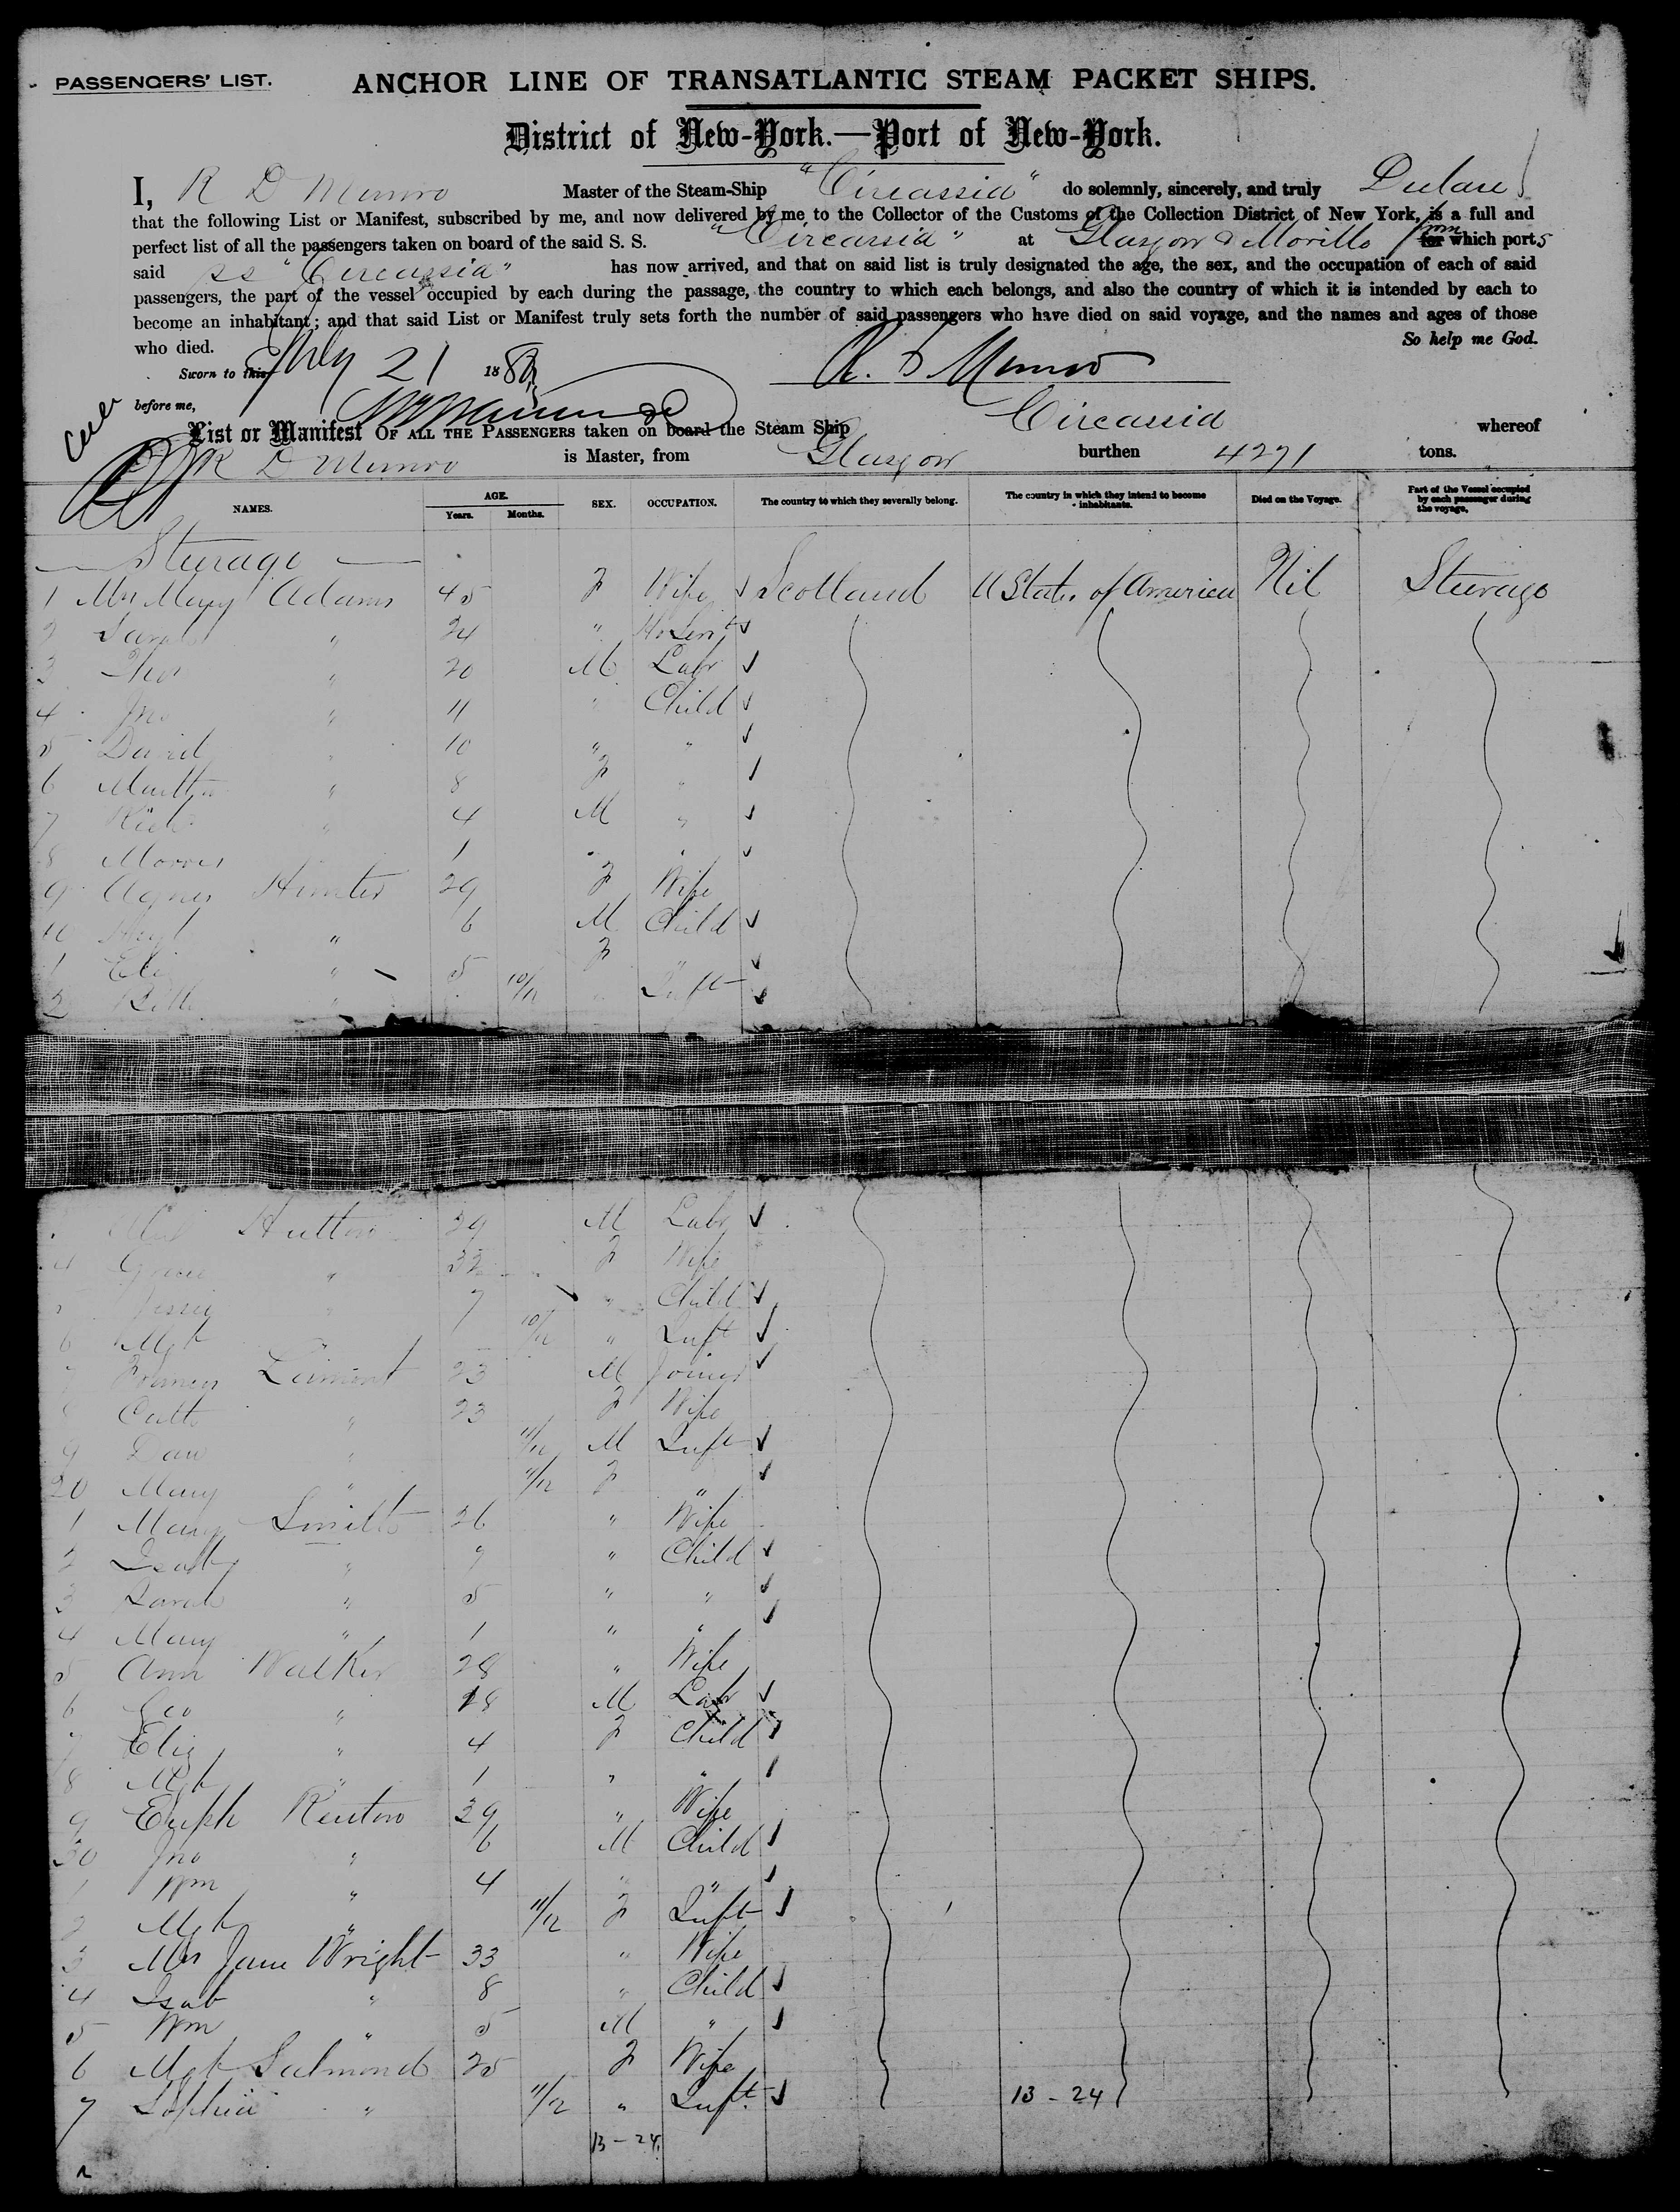 PASSENGERS' LIST.
ANCHOR LINE OF TRANSATLANTIC STEAM PACKET SHIPS.
District of New-York.—Port of New-York.
I, R D Munro Master of the Steam-Ship "Circassia" do solemnly, sincerely, and truly Declare
that the following List or Manifest, subscribed by me, and now delivered by me to the Collector of the Customs of the Collection District of New York, is a full and
perfect list of all the passengers taken on board of the said S. S. "Circassia" at Glasgow & Moville from for which ports
said ss "Circassia" has now arrived, and that on said list is truly designated the age, the sex, and the occupation of each of said
passengers, the part of the vessel occupied by each during the passage, the country to which each belongs, and also the country of which it is intended by each to
become an inhabitant; and that said List or Manifest truly sets forth the number of said passengers who have died on said voyage, and the names and ages of those
who died. So help me God.
Sworn to this July 21 188 R. D Munro
before me,
List or Manifest OF ALL THE PASSENGERS taken on board the Steam Ship Circassia whereof
R D Munro is Master, from Glasgow burthen 4271 tons.
NAMES. AGE. Years. Months. SEX. OCCUPATION. The country to which they severally belong. The country in which they intend to become inhabitants. Died on the Voyage. Part of the Vessel occupied by each passenger during the voyage.
Steerage
1 Mrs Mary Adams 45 F Wife Scotland U States of America Nil Steerage
2 " 24 "
3 Thos " 20 M Labr
4 Jno " 11 " Child
5 David " 10 " "
6 Martha " 8 F "
7 Richd " 4 M "
8 Morris 1 " "
9 Agnes Hunter 29 F Wife
10 " 6 M Child
1 Eliz " 5 F "
2 " 10/12 " Inft
Hutton 29 M Labr
4 Grace " 32 F Wife
5 Jessie " 7 " Child
6 Mgt " 10/12 " Inft
7 Francis Lamont 23 M Joiner
8 Cath " 23 F Wife
9 Dan " 11/12 M Inft
20 Mary " 11/12 F "
1 Mary Smith 26 " Wife
2 " 7 " Child
3 Sarah " 5 " "
4 Mary " 1 " "
5 Ann Walker 28 " Wife
6 Geo " 28 M Labr
7 Eliz " 4 F Child
8 Mgt " 1 " "
9 Euph Renton 29 " Wife
30 Jno " 6 M Child
1 Wm " 4 " "
2 Mgt " 11/12 F Inft
3 Mrs Jane Wright 33 " Wife
4 Isab " 8 " Child
5 Wm " 5 M "
6 Mgt Salmond 25 F Wife
7 Sophia " 11/12 " Inft. 13 - 24
13 - 24